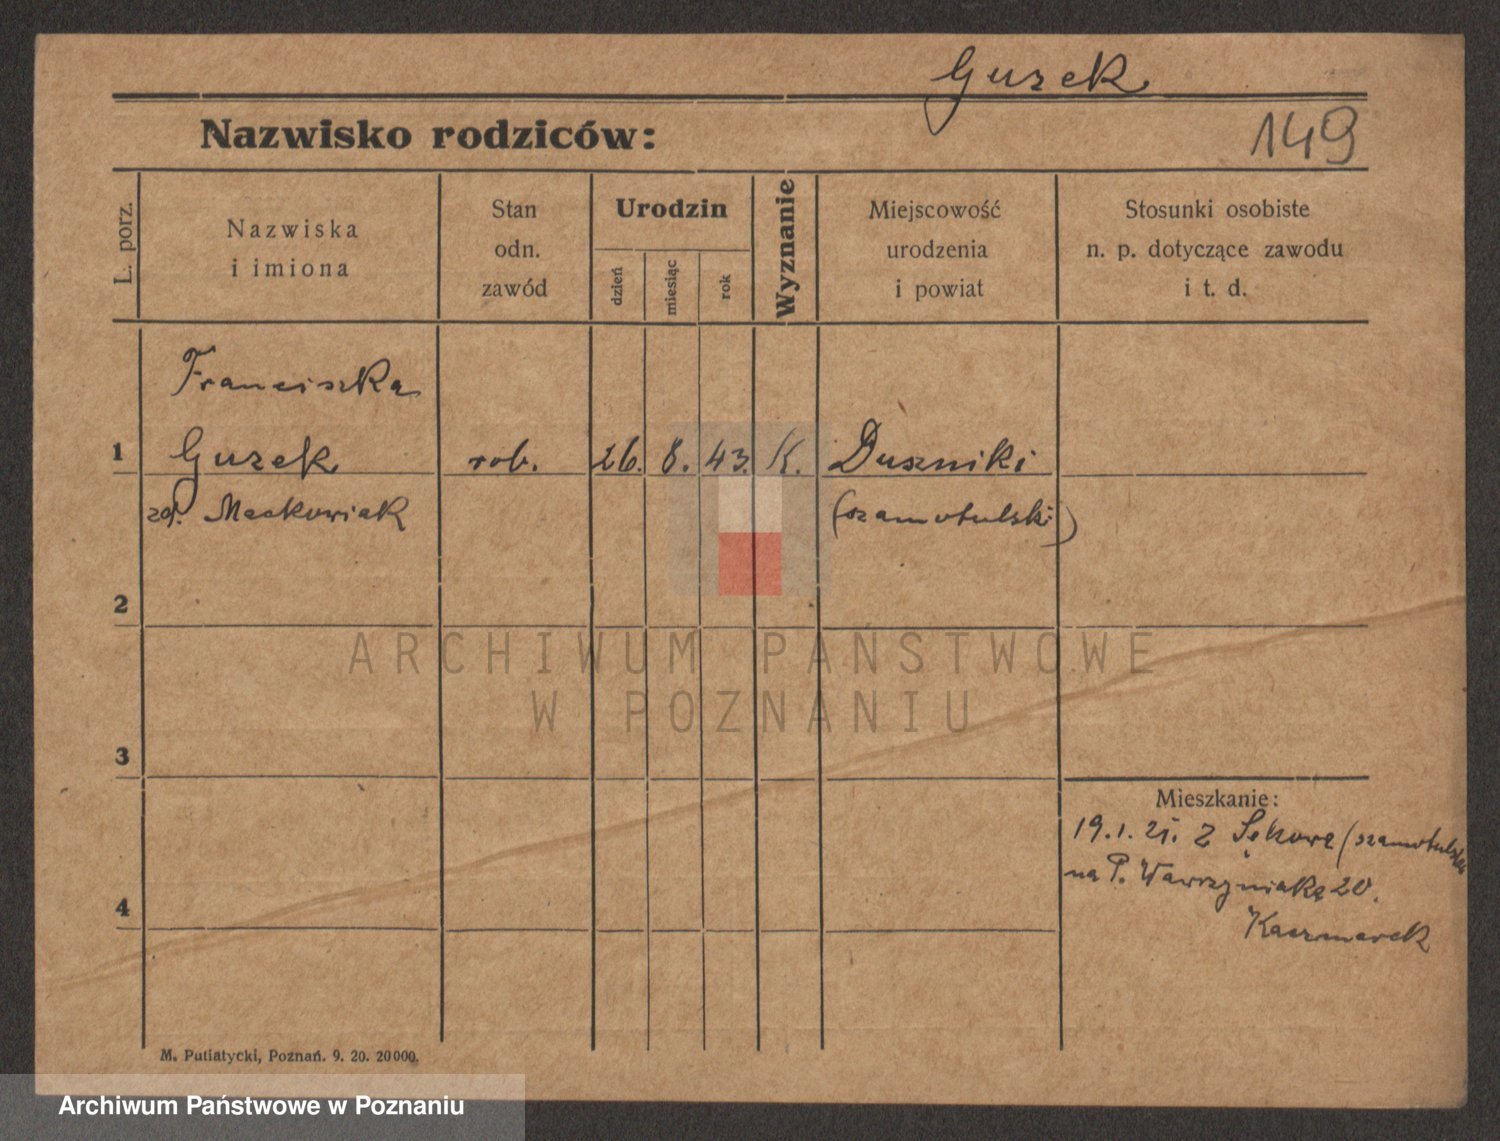 Guzek
149
Nazwisko rodziców:
L. porz.
Nazwiska
i imiona
Stan
odn.
zawód
Urodzin
dzień
miesiąc
rok
Wyznanie
Miejscowość
urodzenia
i powiat
Stosunki osobiste
n. p. dotyczące zawodu
i t. d.
Franciszka
1 Guzek rob. 26. 8. 43. K. Duszniki
zd. Maćkowiak (szamotulski)
2
ARCHIWUM PAŃSTWOWE
W POZNANIU
3
Mieszkanie:
19.1.21. z Sękowa (szamotulski
na P. Wawrzyniaka 20.
4
Kaczmarek
M. Putiatycki, Poznań. 9. 20. 20000.
Archiwum Państwowe w Poznaniu